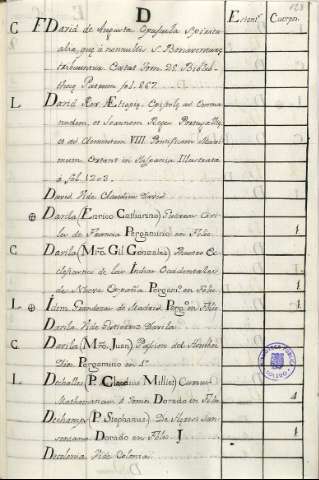 D
Estant.ˢ Cuerpn.
C F David de Augusta Opuscula Spiritu-
alia, quę à nonnullis S. Bonaventurę
tribuuntur Extat tom. 25 Biblioth.
Patrum fol. 867.
L David Rex Ætiopię Epistolę ad Emma-
nuelem, et Joannem Reges Portugallię,
et ad Clementem VIII Pontificem Maxi-
mum Extant in Hispania Illustrata
à fol. 1203.
David Vide Claudius David
⊕ Davila (Enrico Catharino) Guerras Civi-
les de Francia Pergamino en Folio 1
C Davila (Mrõ. Gil Gonzalez) Theatro Ec-
clesiastico de las Indias Occidentales
de Nueva España Pergam.º en Folio 1
L ⊕ Idem Grandezas de Madrid Perg.º en Folio 1
Davila Vide Gutierrez Davila
C Davila (Mrõ. Juan) Passion del Hombre
Dios Pergamino en 4º 1
L Dechalles (P. Claudius Milliet) Cursus
Mathematicus 4 tomos Dorado en Folio 4
Dechamps (P. Stephanus) De Hæresi Jan-
seniana Dorado en Folio I 1
Decolonia Vide Colonia.
BIBLIOTECA PUBLICA
TOLEDO